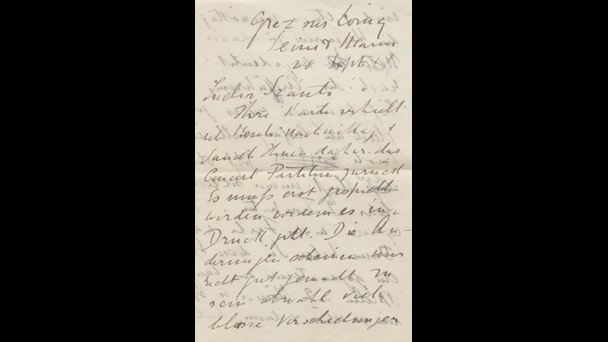 Grez sur Loing
Seine & Marne
28 Sept
Lieber Szanto
Ihre Karte erhielt
ich Heute Nachmittag &
sandte Ihnen daher das
Concert Partitur zurück
Es muss erst gespielt
werden es in
Druck geht. Die An-
derungen scheinen mir
recht gut gemacht zu
sein obwohl viel
blosse Verschiebungen